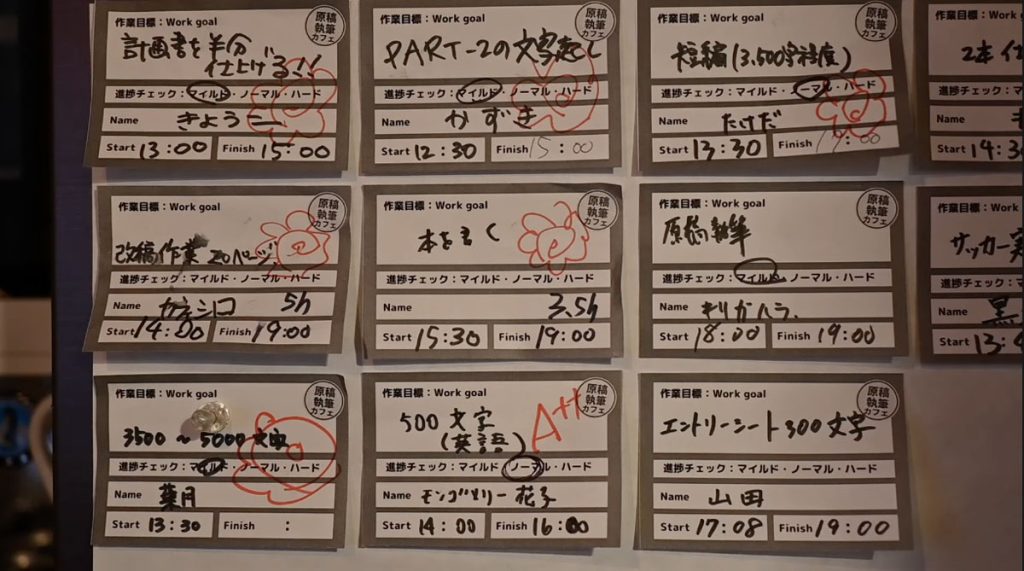 作業目標：Work goal
原稿
執筆
カフェ
計画書を半分
仕上げる!!
進捗チェック：マイルド・ノーマル・ハード
Name きょうこ
Start 13:00 Finish 15:00
作業目標：Work goal
原稿
執筆
カフェ
PART-2の文字起し
進捗チェック：マイルド・ノーマル・ハード
Name かずき
Start 12:30 Finish 15:00
作業目標：Work goal
原稿
執筆
カフェ
短編(3,500字程度)
進捗チェック：マイルド・ノーマル・ハード
Name たけだ
Start 13:30 Finish 17:00
作業目標：Work
2本仕
進捗チェック：マイル
Name
Start 14:3
作業目標：Work goal
原稿
執筆
カフェ
改稿作業 20ページ
進捗チェック：マイルド・ノーマル・ハード
Name カネシロ 5h
Start 14:00 Finish 19:00
作業目標：Work goal
原稿
執筆
カフェ
本を書く
進捗チェック：マイルド・ノーマル・ハード
Name 3.5h
Start 15:30 Finish 19:00
作業目標：Work goal
原稿
執筆
カフェ
原稿執筆
進捗チェック：マイルド・ノーマル・ハード
Name キリガハラ.
Start 18:00 Finish 19:00
作業目標：Work
サッカー実
進捗チェック：マイル
Name 黒
Start 13:0
作業目標：Work goal
原稿
執筆
カフェ
3500～5000文字
進捗チェック：マイルド・ノーマル・ハード
Name 葉月
Start 13:30 Finish :
作業目標：Work goal
原稿
執筆
カフェ
500文字
(英語)
A++
進捗チェック：マイルド・ノーマル・ハード
Name モンゴメリー花子
Start 14:00 Finish 16:00
作業目標：Work goal
原稿
執筆
カフェ
エントリーシート300文字
進捗チェック：マイルド・ノーマル・ハード
Name 山田
Start 17:08 Finish 19:00